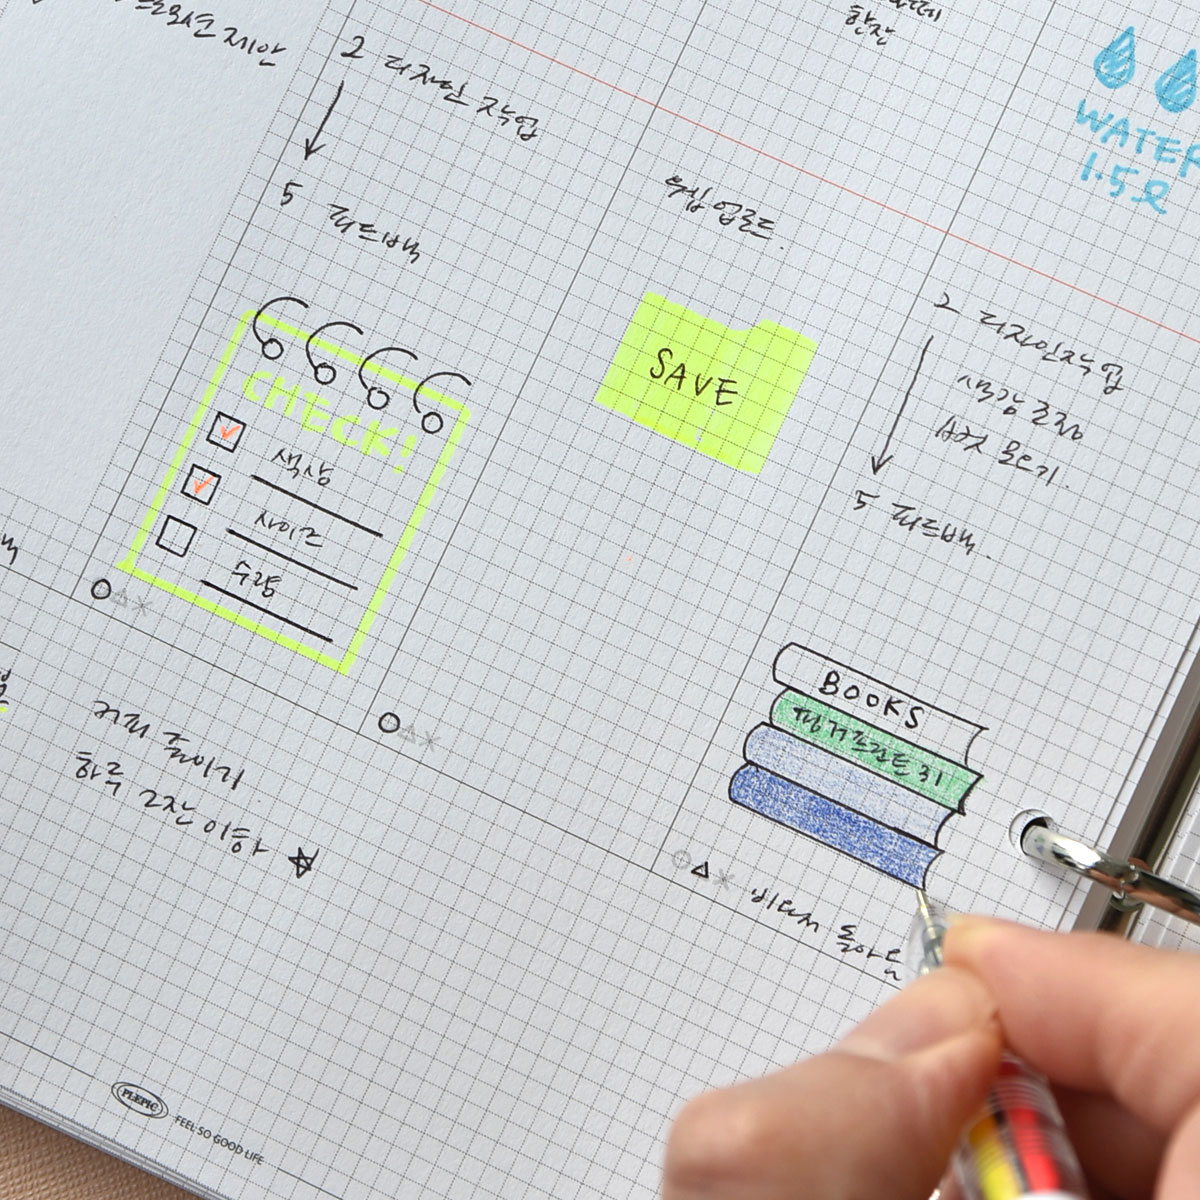 제안
2 디자인 작업
5 피드백
CHECK!
색상
사이즈
수량
한잔
WATER
1.5ℓ
누끼 업로드.
SAVE
2 디자인작업
색감 조정
5 피드백.
BOOKS
핑거프린트 31
커피 줄이기
하루 2잔 이하
PLEPIC
FEEL SO GOOD LIFE